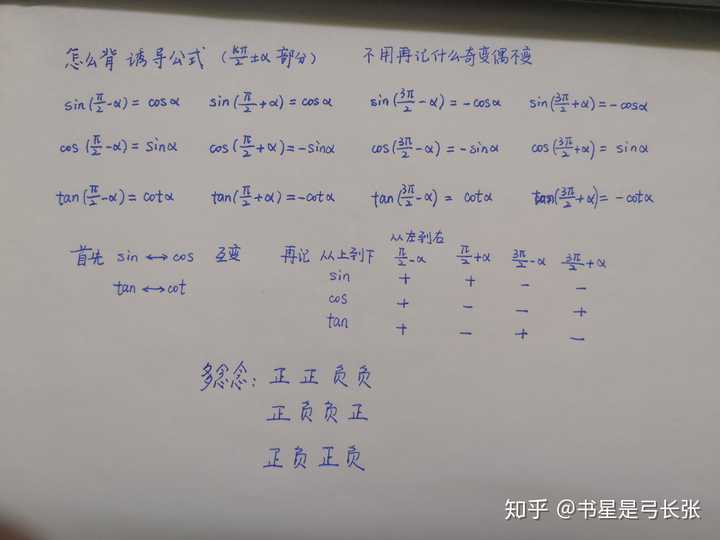 怎么背 诱导公式 (kπ/2±α 部分) 不用再记什么奇变偶不变
sin(π/2-α)= cosα sin(π/2+α)= cosα sin(3π/2-α)= -cosα sin(3π/2+α)= -cosα
cos(π/2-α)= sinα cos(π/2+α)= -sinα cos(3π/2-α)= -sinα cos(3π/2+α)= sinα
tan(π/2-α)= cotα tan(π/2+α)= -cotα tan(3π/2-α)= cotα tan(3π/2+α)= -cotα
从左到右
首先 sin ↔ cos 互变 再记 从上到下 π/2-α π/2+α 3π/2-α 3π/2+α
tan ↔ cot
sin + + - -
cos + - - +
tan + - + -
多念念: 正 正 负 负
正 负 负 正
正 负 正 负
知乎 @书星是弓长张